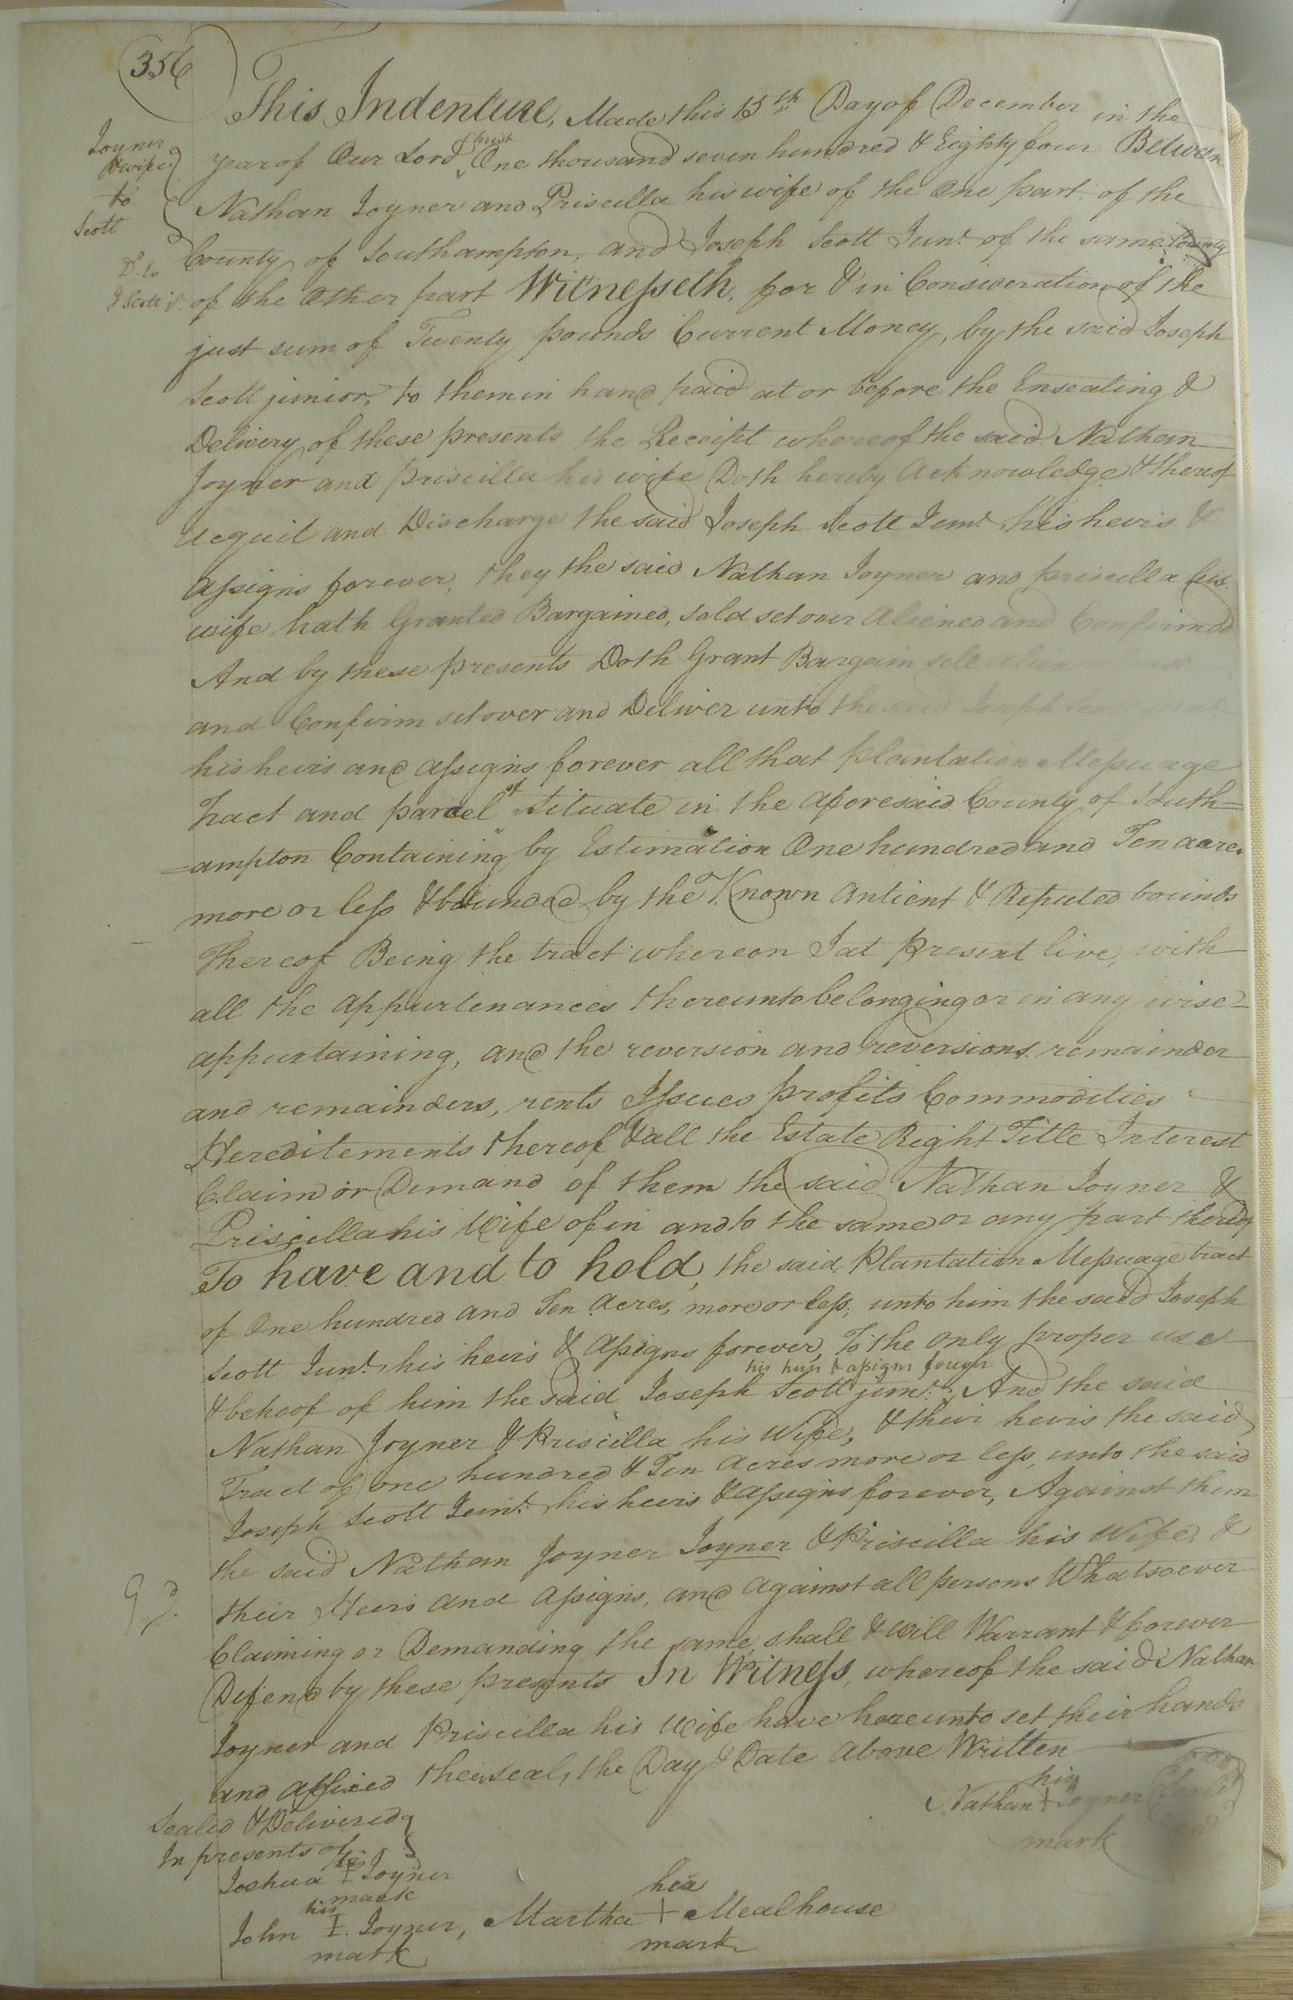 356
Joyner
& wife
to
Scott
Dd. to
J Scott Jr.
This Indenture, Made this 15th Day of December in the
year of Our Lord Christ One thousand seven hundred & Eighty four Between
Nathan Joyner and Priscilla his wife of the One part of the
County of Southampton, and Joseph Scott Junr. of the same County
of the Other part Witnesseth, for & in Consideration of the
just sum of Twenty pounds Current Money, by the said Joseph
Scott junior, to them in hand paid at or before the Ensealing &
Delivery of these presents the Receipt whereof the said Nathan
Joyner and Priscilla his wife Doth hereby Acknowledge & thereof
acquit and Discharge the said Joseph Scott Junr. his heirs &
Assigns forever, they the said Nathan Joyner and Priscilla his
wife hath Granted Bargained, sold set over Aliened and Confirmed
And by these presents Doth Grant Bargain sell alien
and Confirm set over and Deliver unto the said Joseph
his heirs and assigns forever all that plantation Messuage
Tract and parcel of Situate in the aforesaid County of South=
=ampton Containing by Estimation One hundred and Ten acres
more or less & bounded by the Known Antient & Reputed bounds
Thereof Being the tract whereon I at present live, with
all the appurtenances thereunto belonging or in any wise
appurtaining, and the reversion and reversions remainder
and remainders, rents Issues profits Commodities
Hereditements thereof & all the Estate Right Title Interest
Claim or Demand of them the said Nathan Joyner &
Priscilla his Wife of in and to the same or any part thereof
To have and to hold, the said Plantation Messuage tract
of One hundred and Ten Acres, more or less, unto him the said Joseph
Scott Junr. his heirs & Assigns forever, To the only proper use
& behoof of him the said Joseph Scott junr. his heirs & assigns forever, And the said
Nathan Joyner & Priscilla his Wife, & their heirs the said
Tract of one hundred & Ten Acres more or less, unto the said
Joseph Scott Junr. his heirs & assigns forever, Against them
the said Nathan Joyner Joyner & Priscilla his Wife, &
their Heirs and Assigns, and against all persons Whatsoever
Claiming or Demanding the same, shall & will Warrant & forever
Defend by these presents In Witness, whereof the said Nathan
Joyner and Priscilla his Wife have hereunto set their hands
and affixed their seals, the Day & Date above Written
Sealed & Delivered
In presents of
Nathan his + mark Joyner (Seal)
Joshua his I mark Joyner
John his I. mark Joyner, Martha her + mark Mealhouse